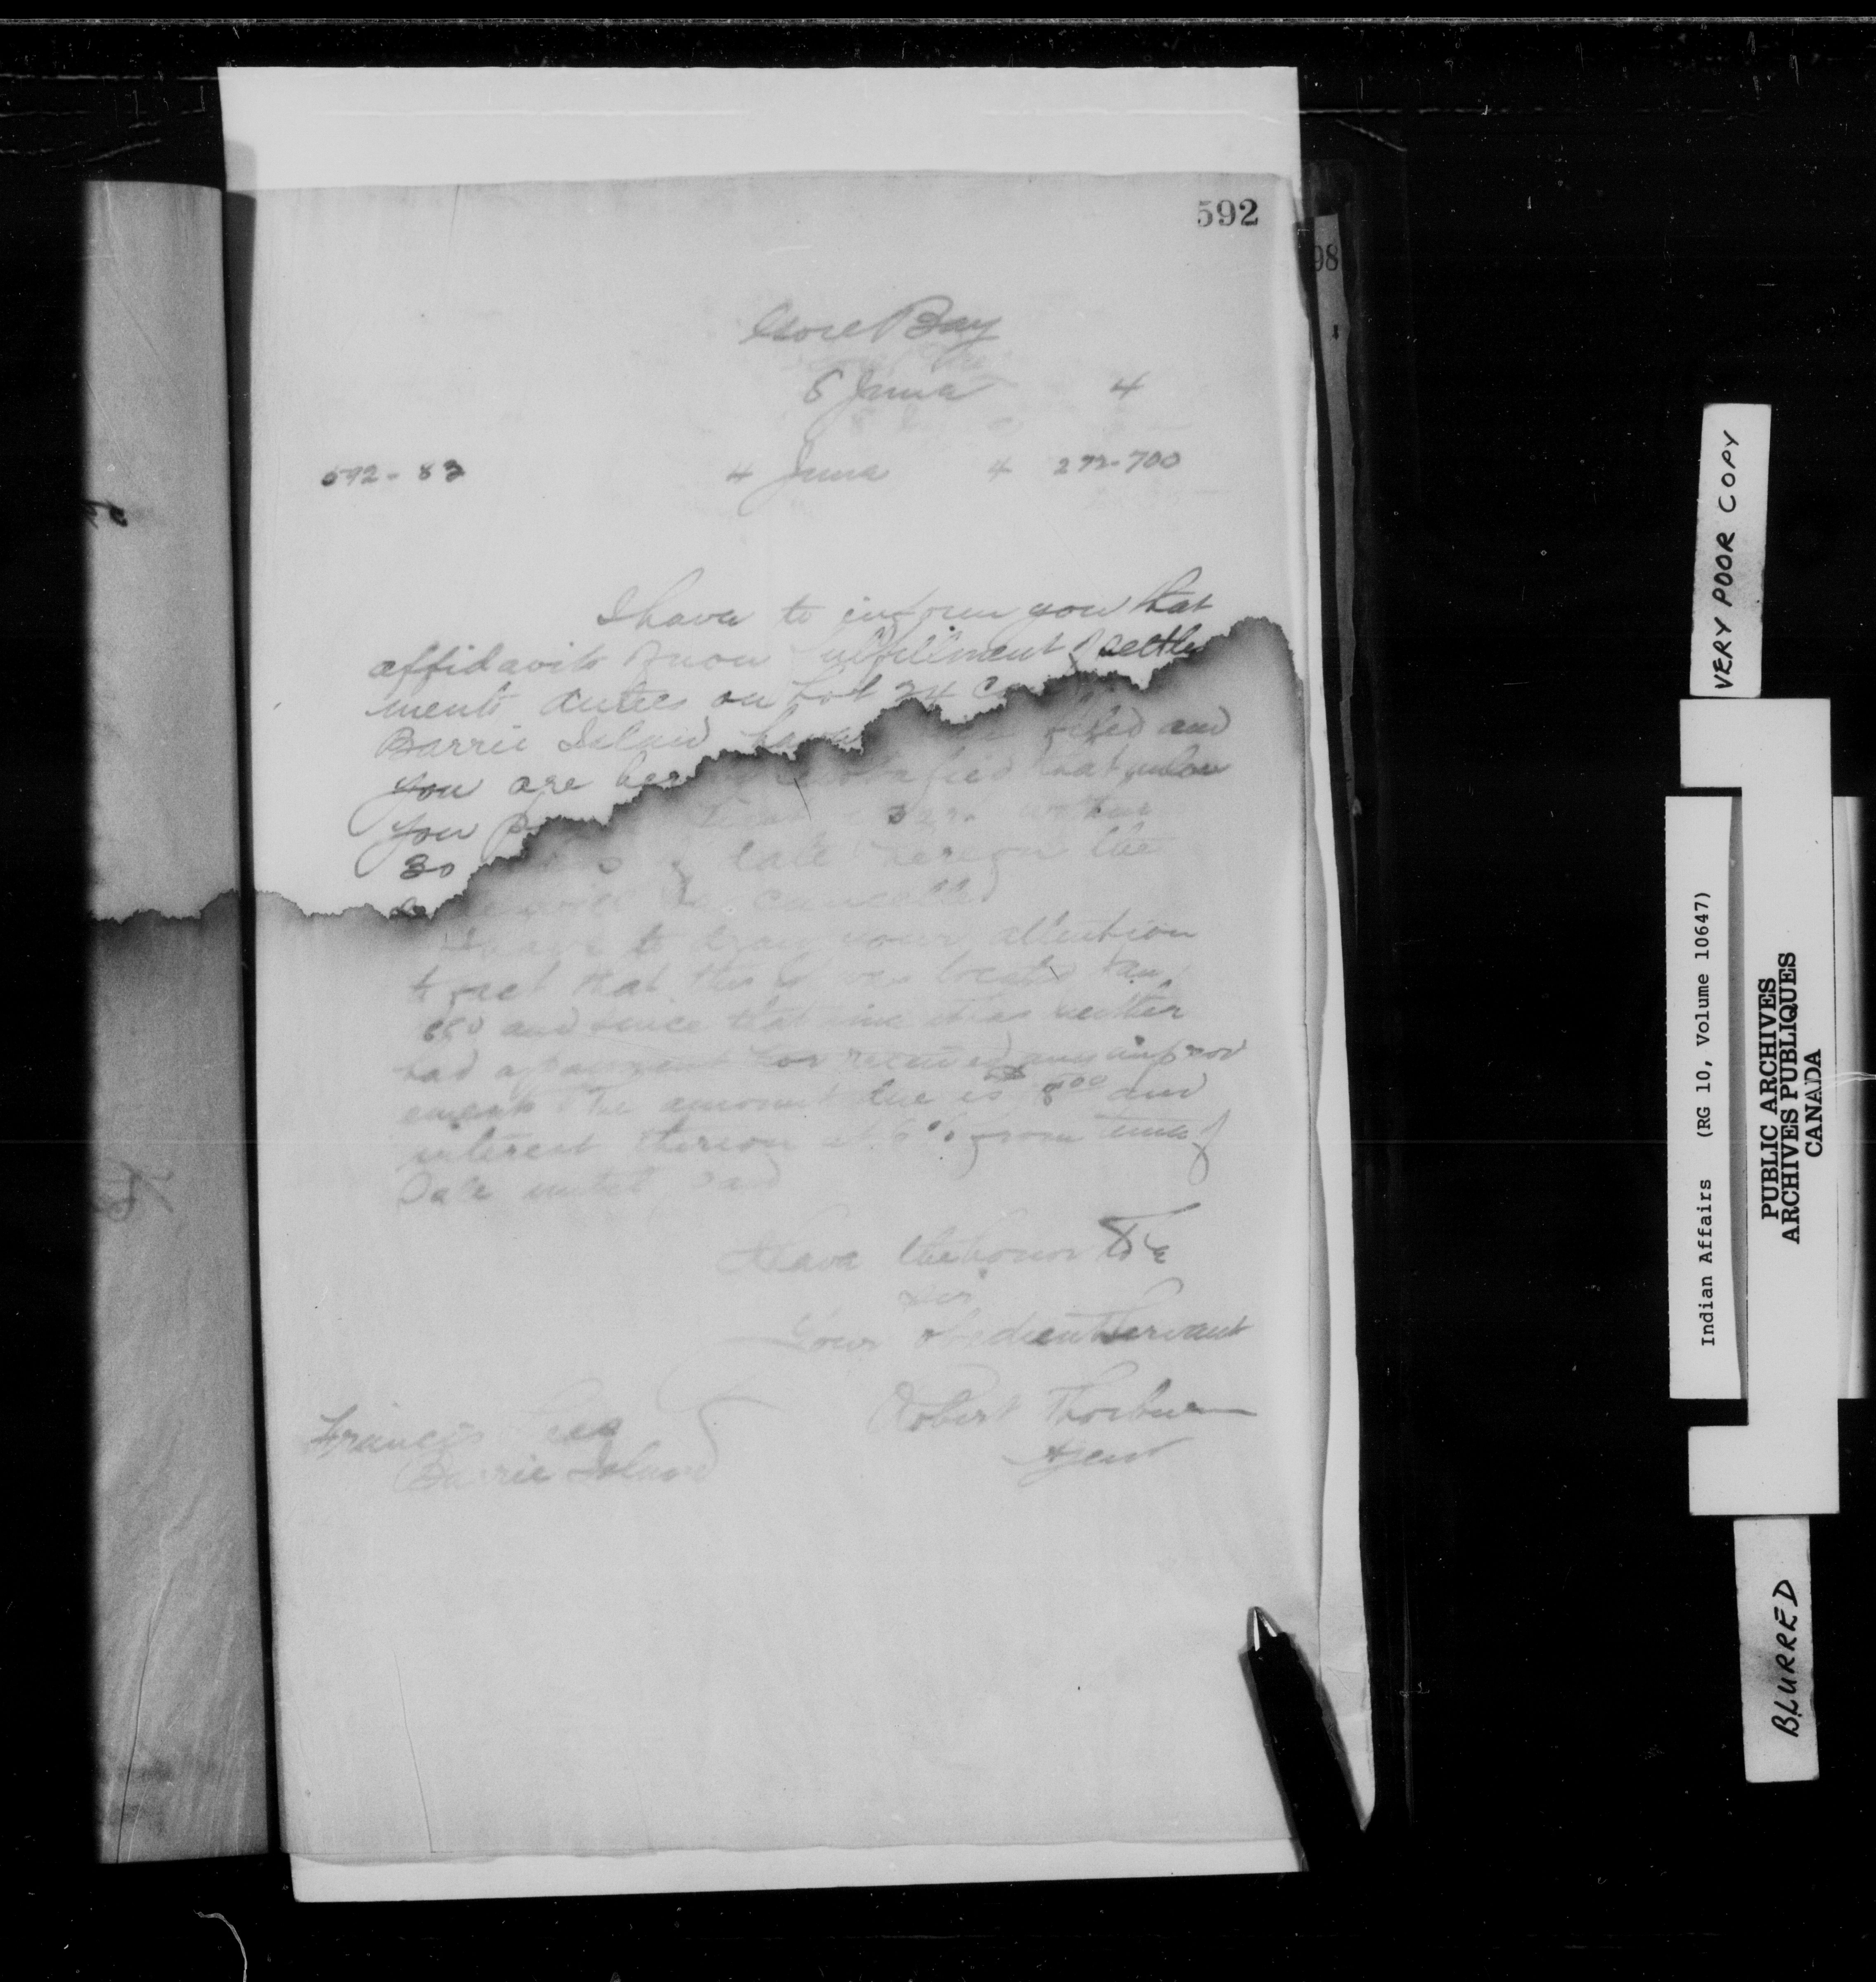 592
98
Gore Bay
5 June 4
592-83 4 June 4 272-700
I have to inform you that
affidavits of non fulfillment of settle
ments duties on Lot 24
Barrie Island have filed and
you are hereby notified that unless
you
30 date hereon the
will be cancelled
to draw your attention
to fact that this was located
and since that time has neither
had a payment nor received any improv
ements The amount due is 8 00 and
interest thereon at 6% from time of
Sale until paid
I have the honor to be
Sir
Your obedient Servant
Robert Thorburn
Agent
Francis
Barrie Island
VERY POOR COPY
Indian Affairs (RG 10, Volume 10647)
PUBLIC ARCHIVES
ARCHIVES PUBLIQUES
CANADA
BLURRED